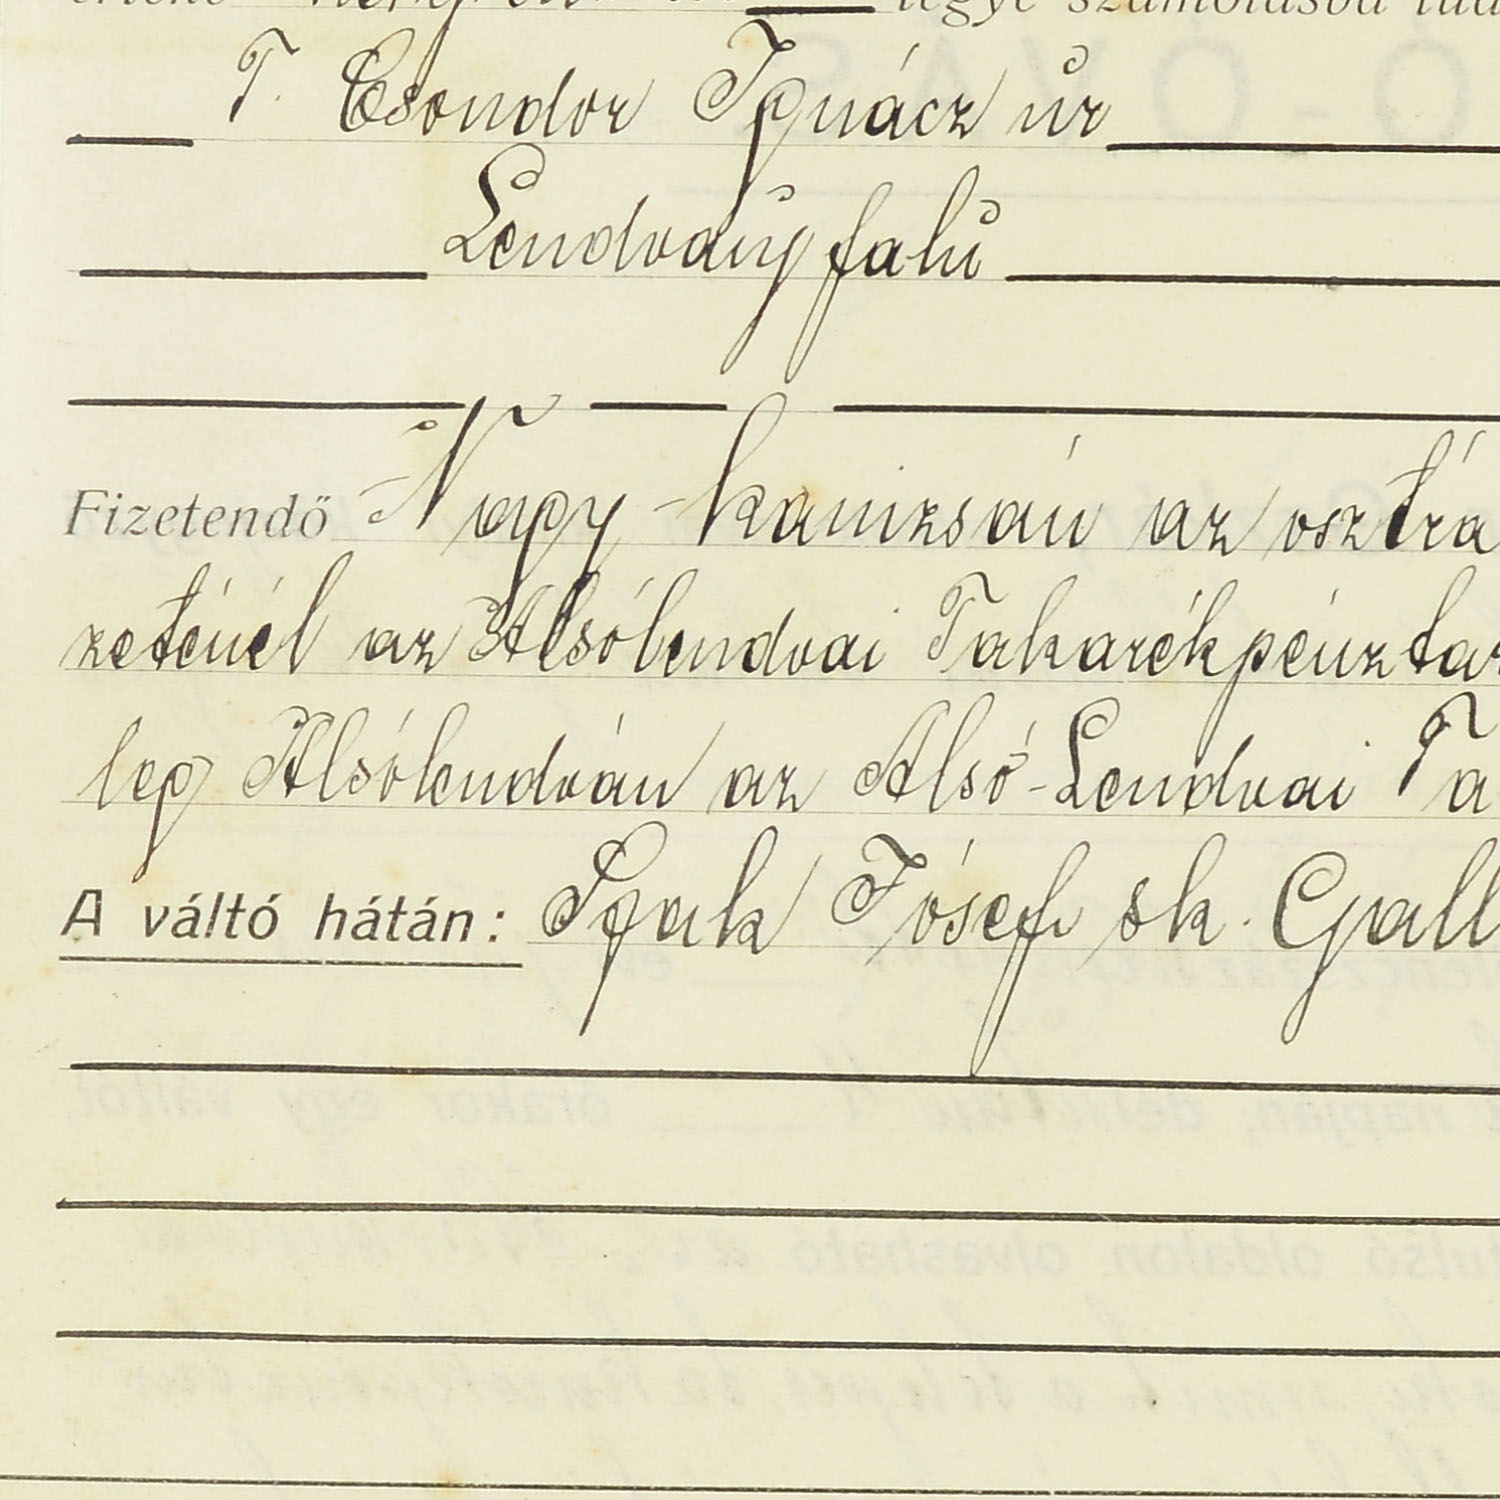 T. Csondor Ignácz úr
Lendvaújfalú
Fizetendő Nagy-kanizsán az osztrá
zeténél az Alsólendvai Takarékpénztár
leg Alsólendván az Alsó-Lendvai Ta
A váltó hátán: Ignák Jósef sk. Gall